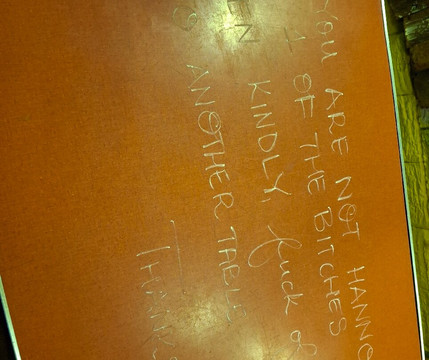 YOU ARE NOT
1 OF THE BITCHES
KINDLY, fuck
ANOTHER TABLE
THANKS